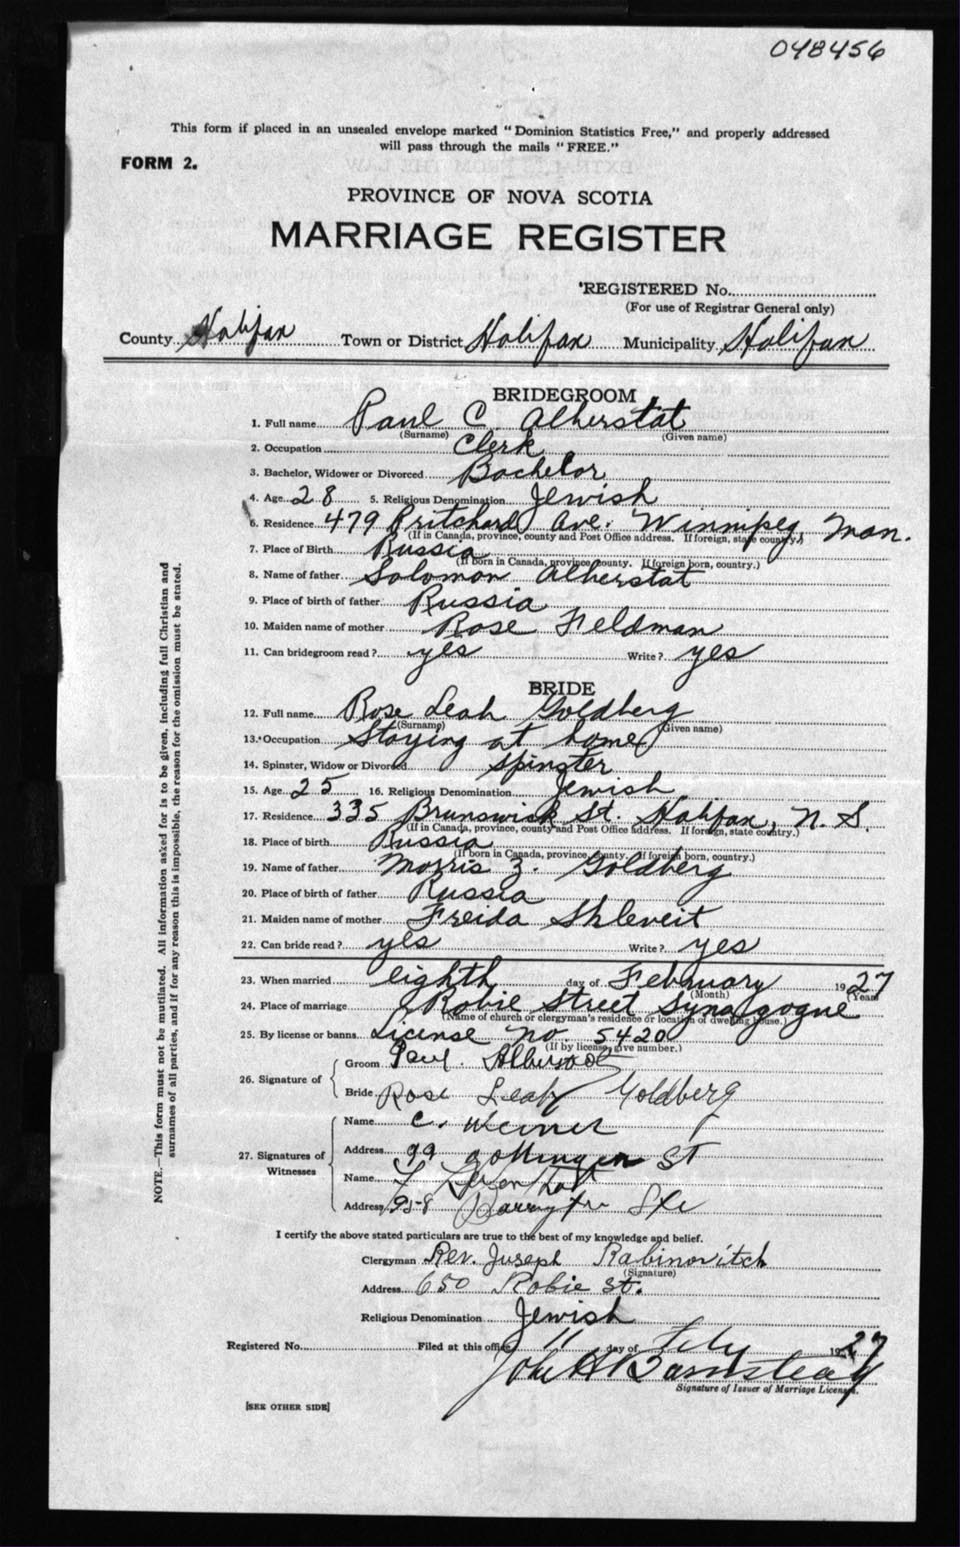 048456
This form if placed in an unsealed envelope marked "Dominion Statistics Free," and properly addressed
will pass through the mails "FREE."
FORM 2.
PROVINCE OF NOVA SCOTIA
MARRIAGE REGISTER
REGISTERED No.
(For use of Registrar General only)
County Halifax Town or District Halifax Municipality Halifax
BRIDEGROOM
1. Full name Paul C. Alherstat
(Surname) (Given name)
2. Occupation Clerk
3. Bachelor, Widower or Divorced Bachelor
4. Age 28 5. Religious Denomination Jewish
6. Residence 479 Pritchard Ave. Winnipeg, Man.
(If in Canada, province, county and Post Office address. If foreign, state country.)
7. Place of Birth Russia
(If born in Canada, province county. If foreign born, country.)
8. Name of father Solomon Alherstat
9. Place of birth of father Russia
10. Maiden name of mother Rose Feldman
11. Can bridegroom read? yes Write? yes
BRIDE
12. Full name Rose Leah Goldberg
(Surname) (Given name)
13. Occupation Staying at home
14. Spinster, Widow or Divorced Spinster
15. Age 25 16. Religious Denomination Jewish
17. Residence 335 Brunswick St. Halifax, N. S.
(If in Canada, province, county and Post Office address. If foreign, state country.)
18. Place of birth Russia
(If born in Canada, province county. If foreign born, country.)
19. Name of father Morris Z. Goldberg
20. Place of birth of father Russia
21. Maiden name of mother Freida Shleveit
22. Can bride read? yes Write? yes
23. When married eighth day of February 1927
(Month) (Year)
24. Place of marriage Robie Street Synagogue
(Name of church or clergyman's residence or location of dwelling house.)
25. By license or banns License No. 5420
(If by license, give number.)
26. Signature of
Groom Paul
Bride Rose Leah Goldberg
27. Signatures of Witnesses
Name C. Weiner
Address 99 Gottingen St
Name
Address Barrington
I certify the above stated particulars are true to the best of my knowledge and belief.
Clergyman Rev. Joseph Rabinovitch
(Signature)
Address 650 Robie St.
Religious Denomination Jewish
Registered No. Filed at this office 11 day of Feby 1927
John H Barnstead
Signature of Issuer of Marriage Licenses.
[SEE OTHER SIDE]
NOTE.—This form must not be mutilated. All information asked for is to be given, including full Christian and
surnames of all parties, and if for any reason this is impossible, the reason for the omission must be stated.